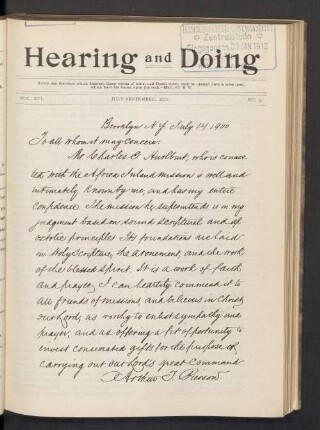 Hearing and Doing
VOL. XVI.
JULY-SEPTEMBER,
NO. 3.
Brooklyn N.Y July 14 1900
To all whom it may Concern:
Mr. Charles E. Hurlburt, who is connec
ted with the Africa Inland mission is well and
intimately known by me, and has my entire
confidence. The mission he superintends is in my
judgment based on sound scriptural and ap
ostolic principles Its foundations are laid
in Holy Scripture, the atonement, and the work
of the blessed Spirit. It is a work of faith
and prayer, I can heartily commend it to
all friends of missions and believers in Christ
our Lord, as worthy to enlist sympathy and
prayer, and as offering a fit opportunity to
invest consecrated gifts for the purpose of
carrying out our Lord's great command.
Arthur T. Pierson.